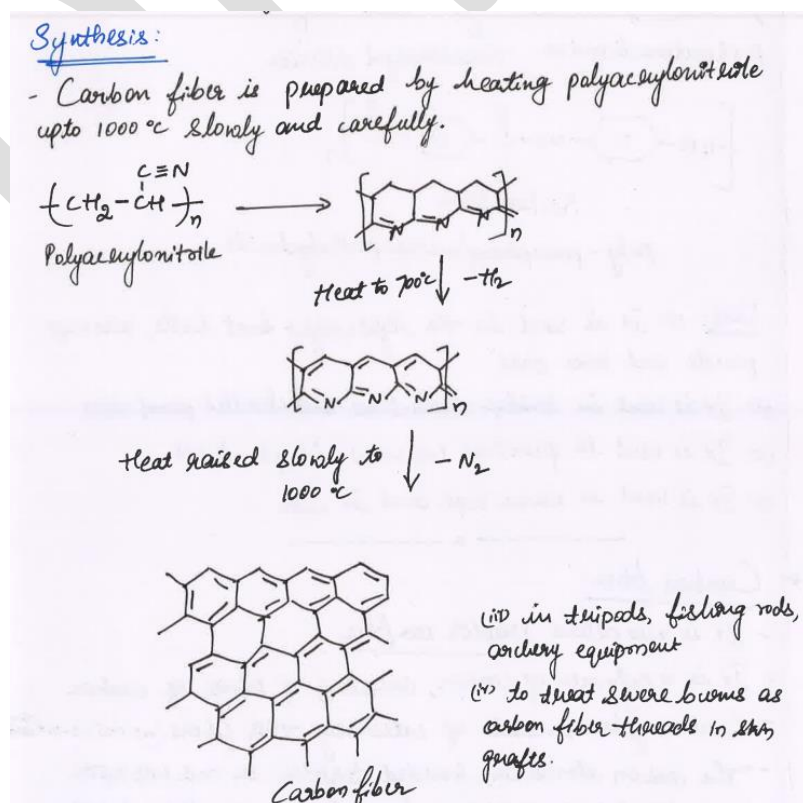 Synthesis:
- Carbon fiber is prepared by heating polyacrylonitrile
upto 1000 °c slowly and carefully.
C≡N
-(CH2-CH-)n
Polyacrylonitrile
N N N n
Heat to 700°c -H2
N N N n
Heat raised slowly to - N2
1000 °c
(iii) in tripods, fishing rods,
archery equipment
to treat severe burns as
carbon fiber threads in skin
grafts.
Carbon fiber